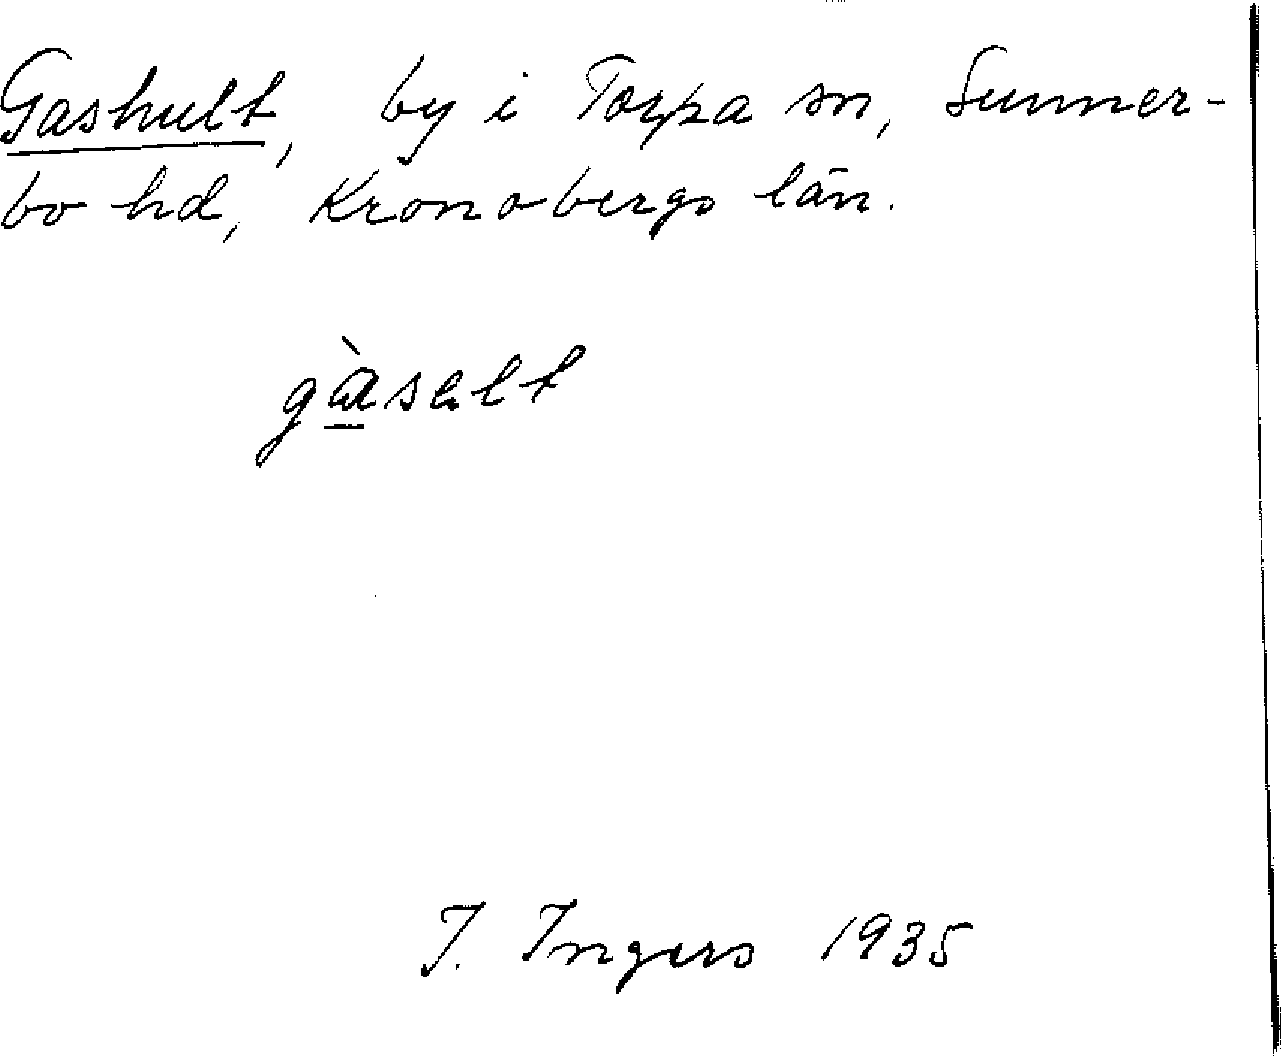 Gashult, by i Torpa sn, Sunner-
bo hd, Kronobergs län.
gàsalt
I. Ingers 1935